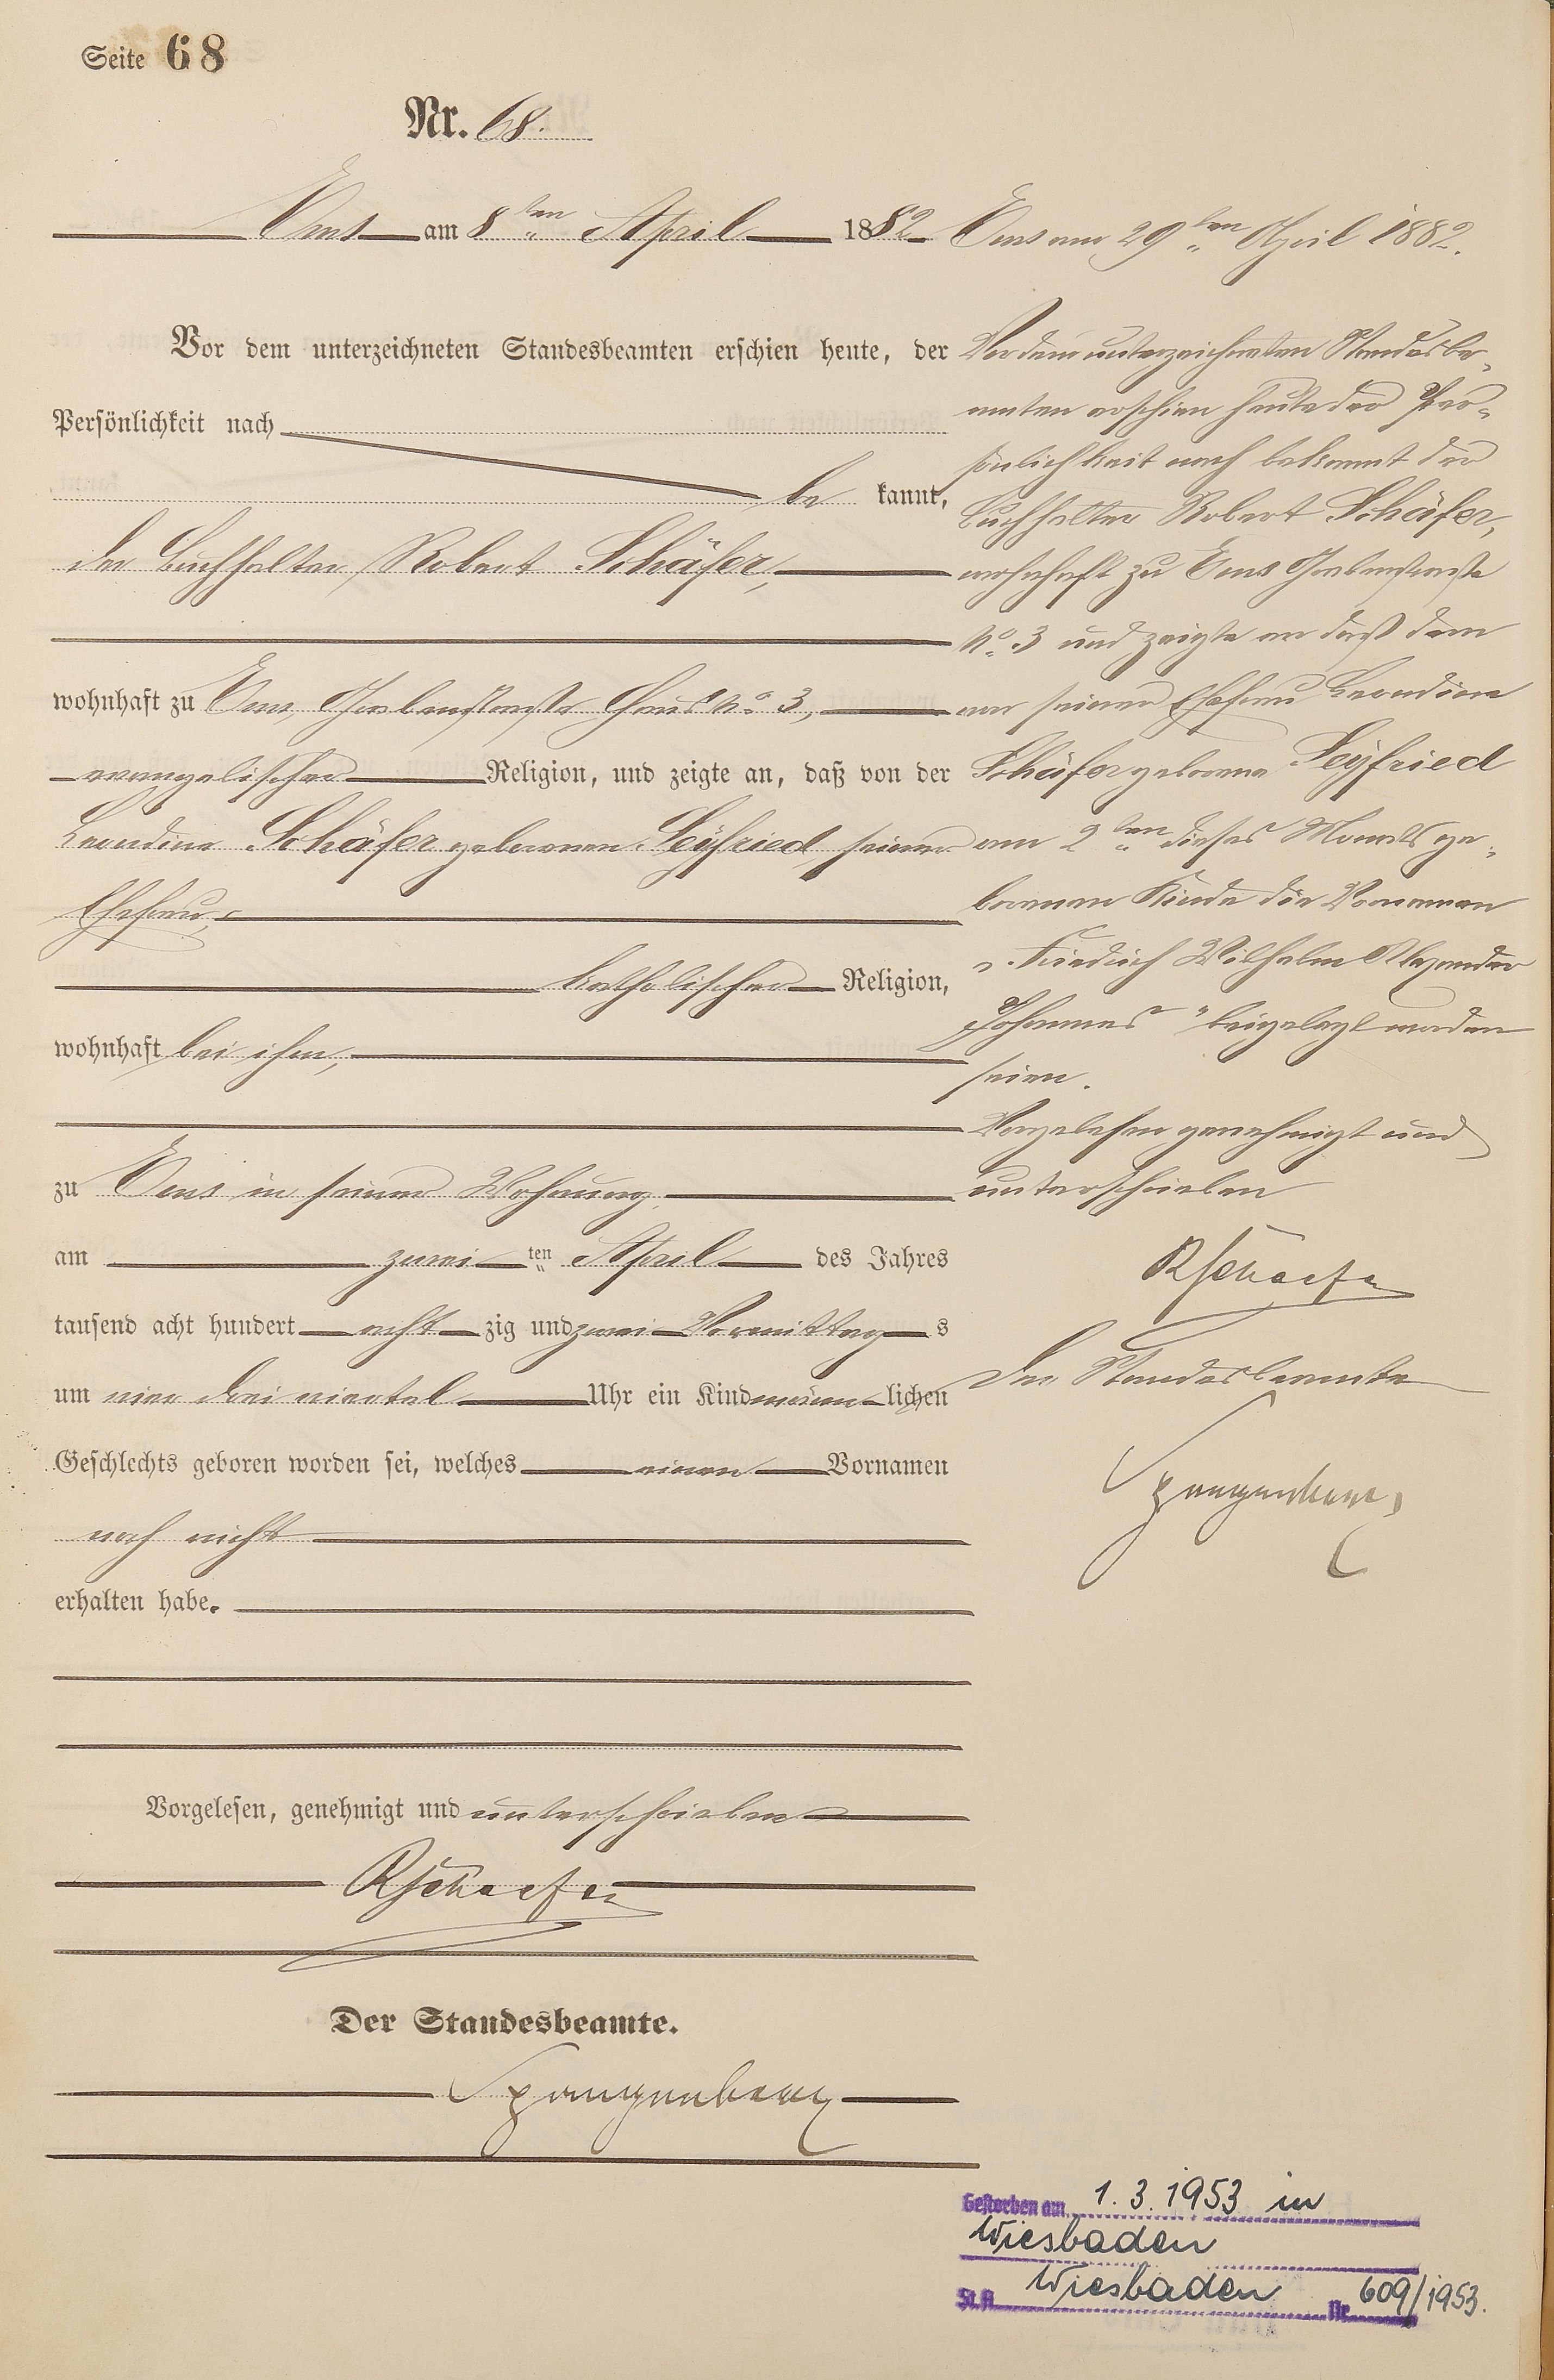 Seite 68
Nr. 68.
Ems am 8ten April 1882
Vor dem unterzeichneten Standesbeamten erschien heute, der
Persönlichkeit nach
be kannt,
der Buchhalter Robert Schäfer,
wohnhaft zu Ems, Grabenstraße Haus No 3,
evangelischer Religion, und zeigte an, daß von der
Leondine Schäfer geborenen Seyfried, seiner
Ehefrau,
katholischer Religion,
wohnhaft bei ihm,
zu Ems in seiner Wohnung
am zwei ten April des Jahres
tausend acht hundert acht zig und zwei Vormittag s
um vier drei viertel Uhr ein Kind männ lichen
Geschlechts geboren worden sei, welches einen Vornamen
noch nicht
erhalten habe.
Vorgelesen, genehmigt und unterschrieben
RSchaefer
Der Standesbeamte.
Spangenberg
Ems am 29ten April 1882.
Vor dem unterzeichneten Standesbe-
amten erschien heute der Per-
sönlichkeit nach bekannt der
Buchhalter Robert Schäfer,
wohnhaft zu Ems Grabenstraße
No. 3 und zeigte an daß dem
von seiner Ehefrau Leondine
Schäfer geborene Seyfried
am 2ten dieses Monats ge-
borenen Kinde die Vornamen
"Friedrich Wilhelm Alexander
Johannes" beigelegt worden
seien.
Vorgelesen genehmigt und
unterschrieben
RSchaefer
Der Standesbeamte
Spangenberg
Gestorben am 1.3.1953 in
Wiesbaden
St.A. Wiesbaden Nr. 609/1953.